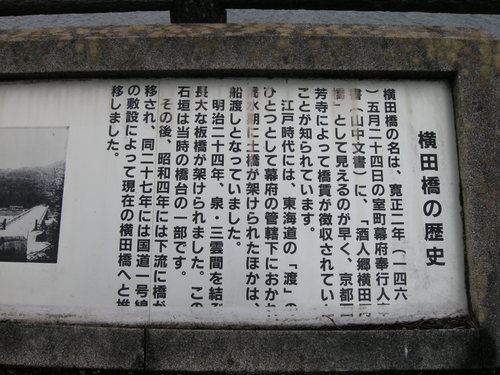 横田橋の歴史
横田橋の名は、寛正二年(一四六
)五月二十四日の室町幕府奉行人
書(山中文書)に、「酒人郷横田
橋」として見えるのが早く、京都
芳寺によって橋賃が徴収されてい
ことが知られています。
江戸時代には、東海道の「渡」の
ひとつとして幕府の管轄下におか
渇水期に土橋が架けられたほかは、
船渡しとなっていました。
明治二十四年、泉・三雲間を結
長大な板橋が架けられました。この
石垣は当時の橋台の一部です。
その後、昭和四年には下流に橋が
移され、同二十七年には国道一号線
の敷設によって現在の横田橋へと推
移しました。